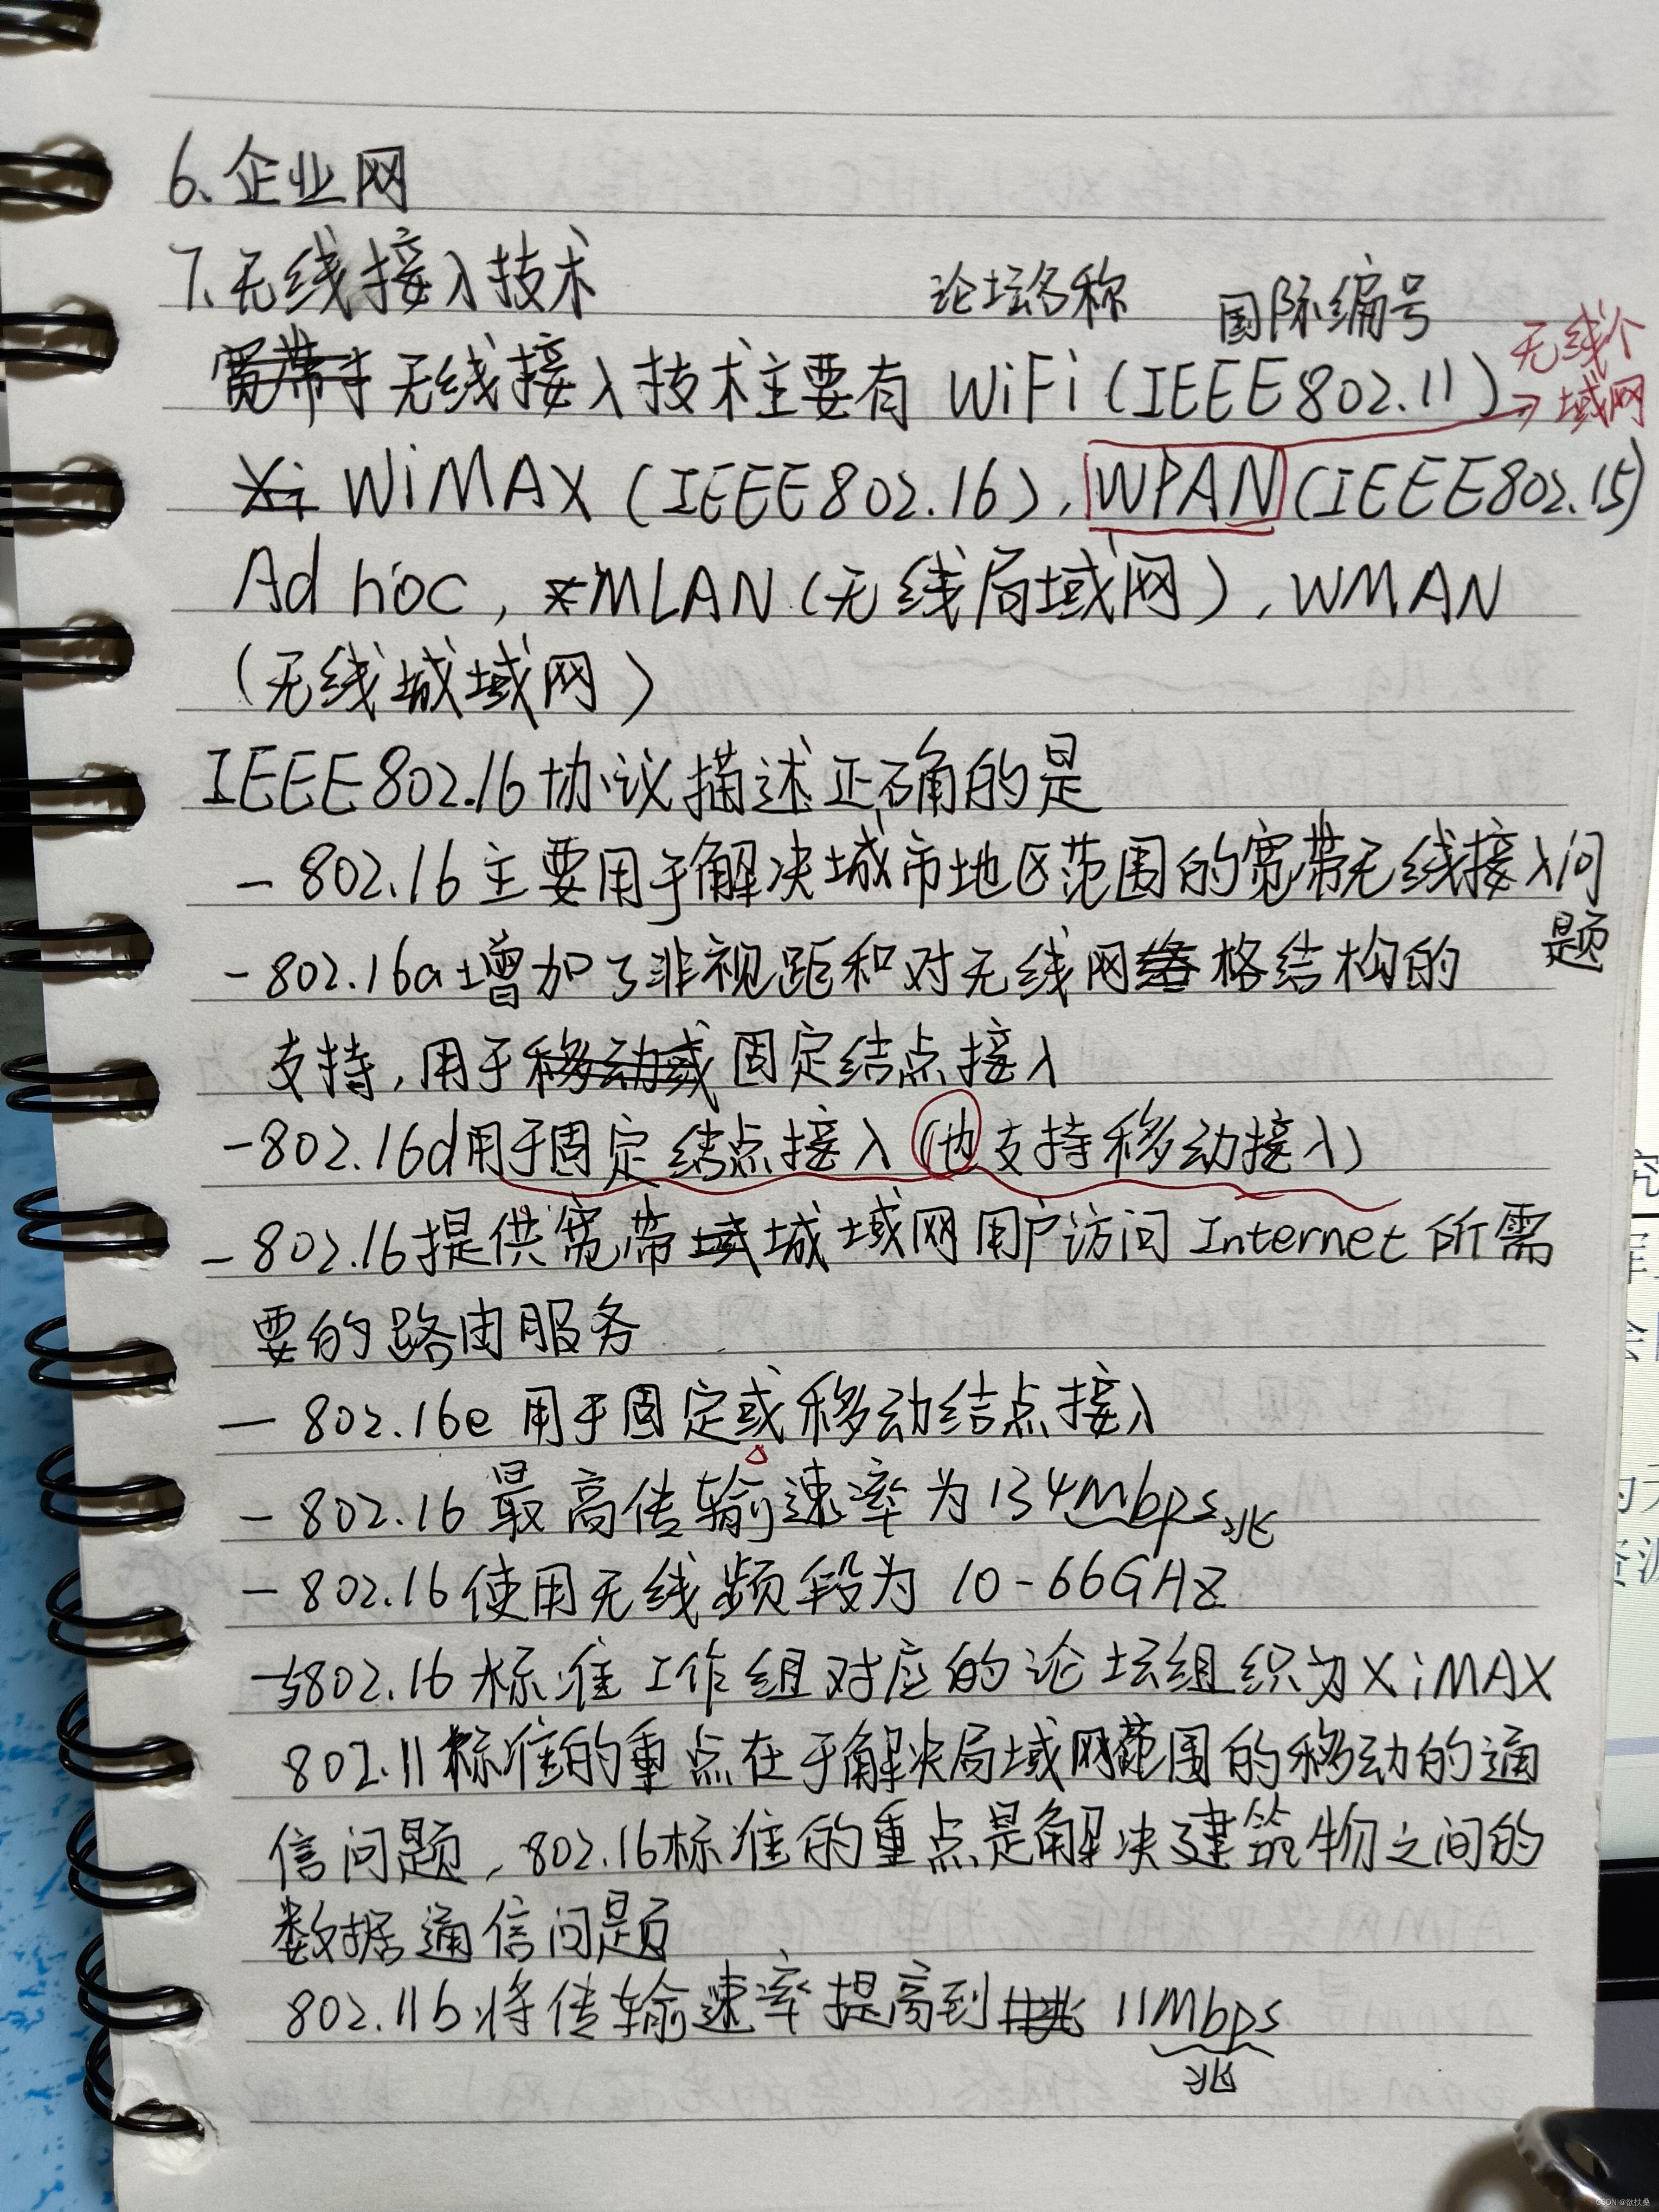 6、企业网
7、无线接入技术
论坛名称 国际编号
无线接入技术主要有 WiFi (IEEE802.11),
无线个
域网
WiMAX (IEEE802.16), WPAN (IEEE802.15)
Ad hoc, MLAN (无线局域网), WMAN
(无线城域网)
IEEE802.16协议描述正确的是
- 802.16 主要用于解决城市地区范围的宽带无线接入问
题
- 802.16a增加了非视距和对无线网格结构的
支持,用于固定结点接入
- 802.16d用于固定结点接入(也支持移动接入)
- 802.16提供宽带城域网用户访问 Internet 所需
要的路由服务
- 802.16e 用于固定或移动结点接入
- 802.16 最高传输速率为134Mbps
兆
- 802.16使用无线频段为 10-66GHZ
- 与802.16标准工作组对应的论坛组织为XiMAX
802.11标准的重点在于解决局域网范围的移动的通
信问题,802.16标准的重点是解决建筑物之间的
数据通信问题
802.11b将传输速率提高到 11Mbps
兆
CSDN @欲扶桑